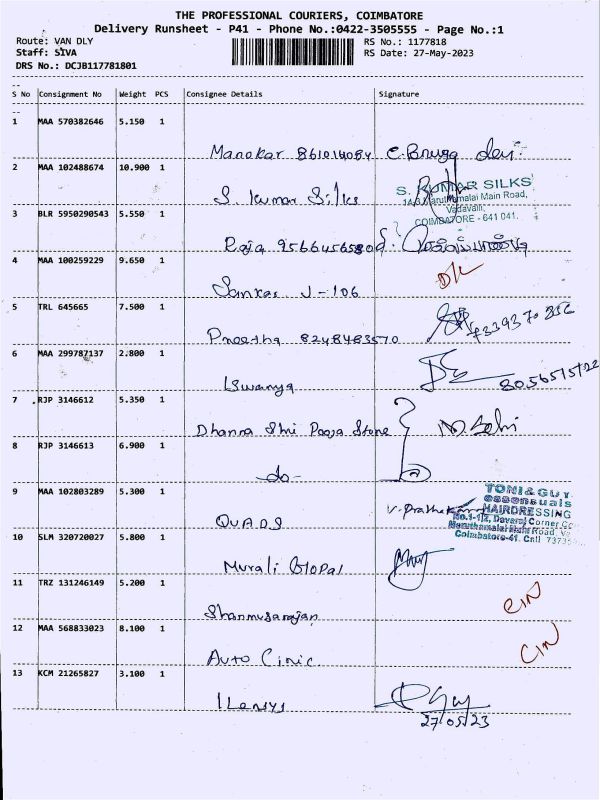 THE PROFESSIONAL COURIERS, COIMBATORE
Delivery Runsheet - P41 - Phone No.:0422-3505555 - Page No.:1
Route: VAN DLY RS No.: 1177818
Staff: SIVA RS Date: 27-May-2023
DRS No.: DCJB117781801
S No Consignment No Weight PCS Consignee Details Signature
1 MAA 570382646 5.150 1
Manokar
2 MAA 102488674 10.900 1
S. Kumar Silks S. KUMAR SILKS
Main Road,
Vadavalli,
COIMBATORE - 641 041.
3 BLR 5950290543 5.550 1
Raja
4 MAA 100259229 9.650 1
Sankar J-106
5 TRL 645665 7.500 1
Preetha 8248483570
6 MAA 299787137 2.800 1
Iswarya
7 RJP 3146612 5.350 1
Dhanna Shri Pooja Store
8 RJP 3146613 6.900 1
-do-
9 MAA 102803289 5.300 1
QUADS TONI&GUY
essensuals
HAIRDRESSING
Corner
Main Road,
Coimbatore-41.
10 SLM 320720027 5.800 1
Murali Gopal
11 TRZ 131246149 5.200 1
12 MAA 568833023 8.100 1
Auto Cinic
13 KCM 21265827 3.100 1
27/05/23